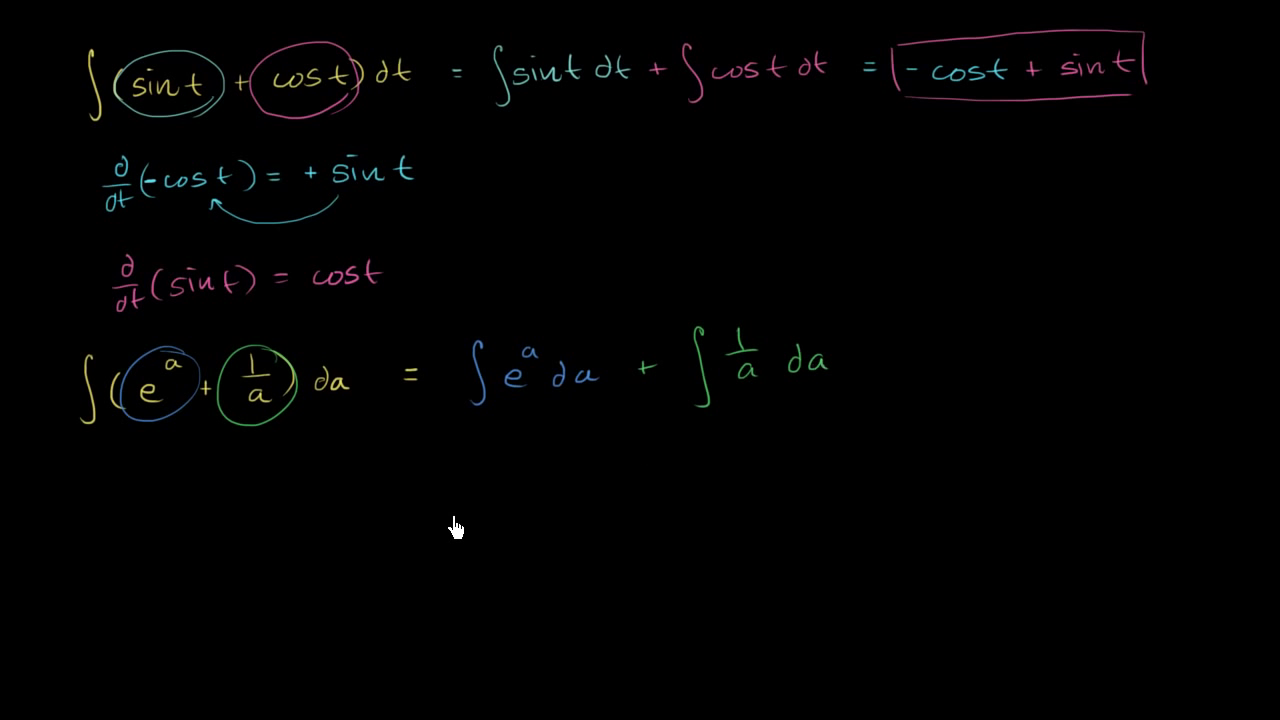 ∫(sin t + cos t) dt = ∫sin t dt + ∫cos t dt = - cos t + sin t
d/dt(-cos t) = + sin t
d/dt(sin t) = cos t
∫(e^a + 1/a) da = ∫e^a da + ∫1/a da